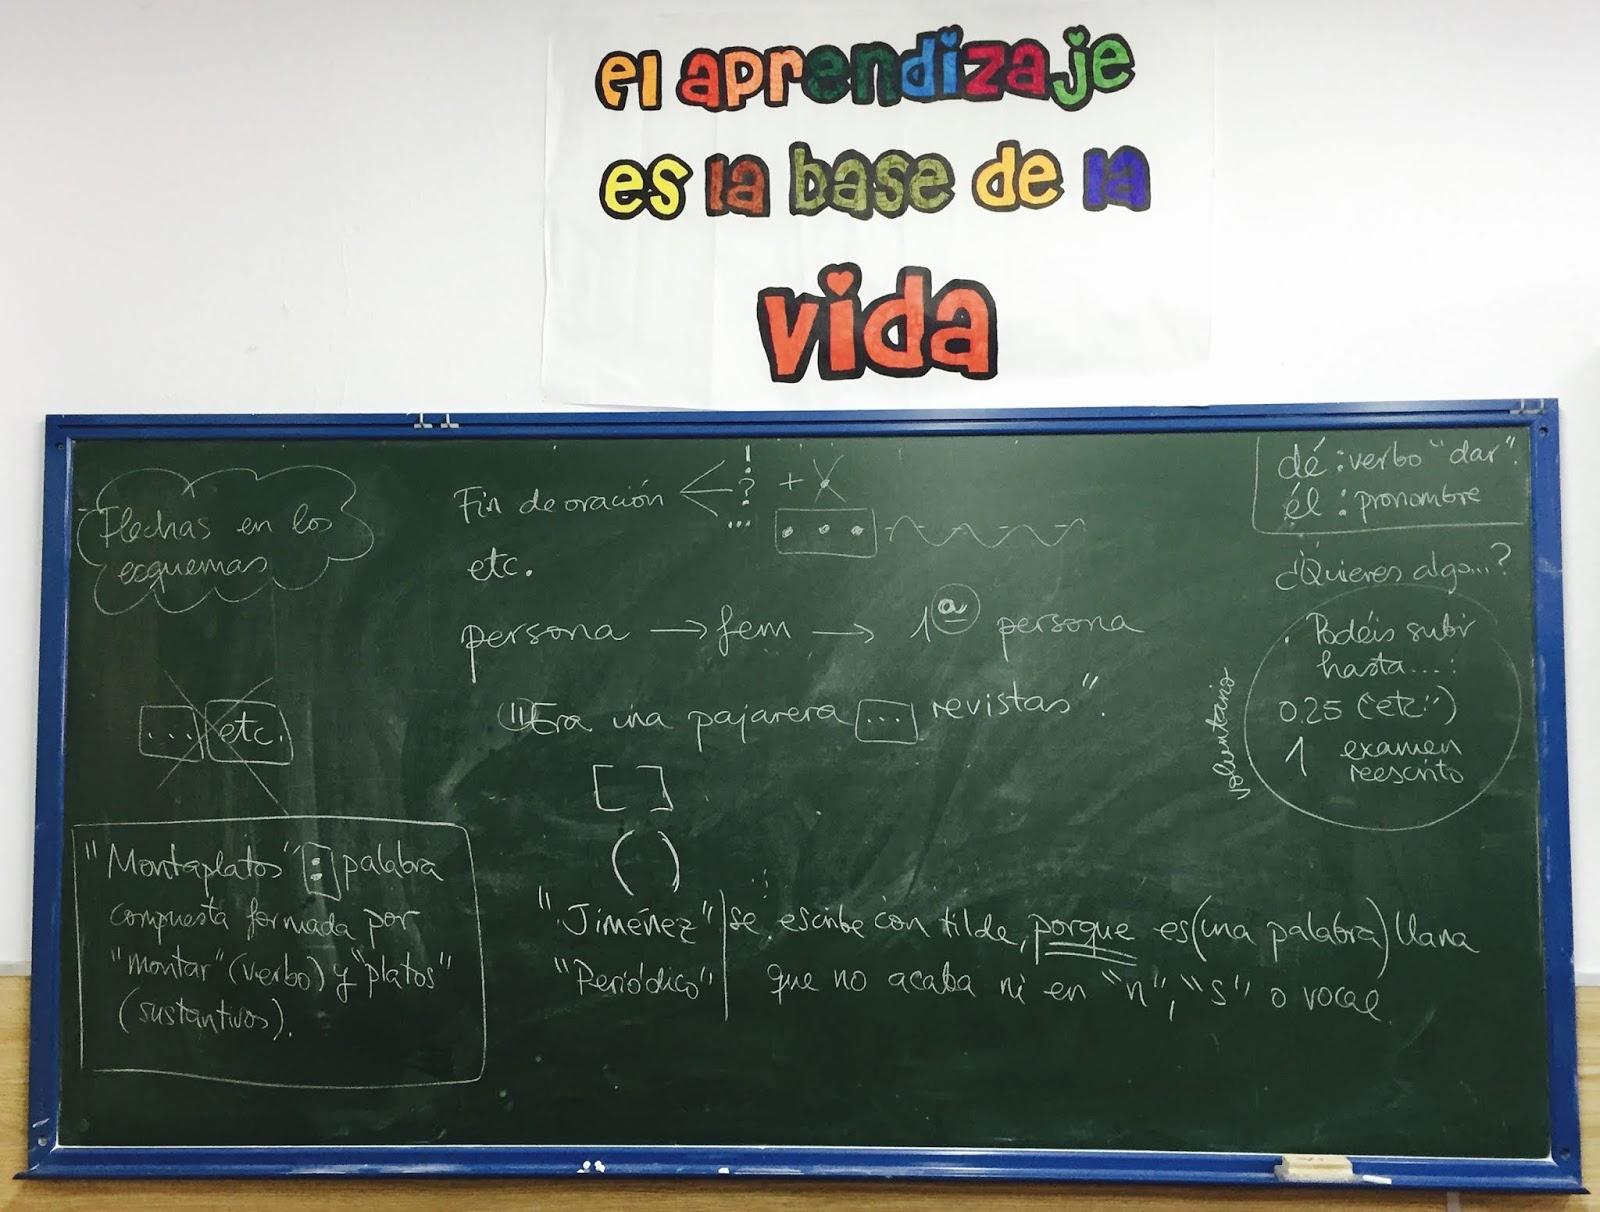 el aprendizaje
es la base de la
vida
Flechas en los
esquemas
... etc.
"Montaplatos" : palabra
compuesta formada por
"montar" (verbo) y "platos"
(sustantivos).
Fin de oración ! ? ... + .
...
etc.
persona → fem → 1ª persona
"Era una pajarera ... revistas".
[ ]
( )
"Jiménez" se escribe con tilde, porque es (una palabra) llana
"Periódico" que no acaba ni en "n", "s" o vocal
dé : verbo "dar".
él : pronombre
¿Quieres algo...?
voluntario
. Podéis subir
hasta....:
0.25 ("etc")
1 examen
reescrito